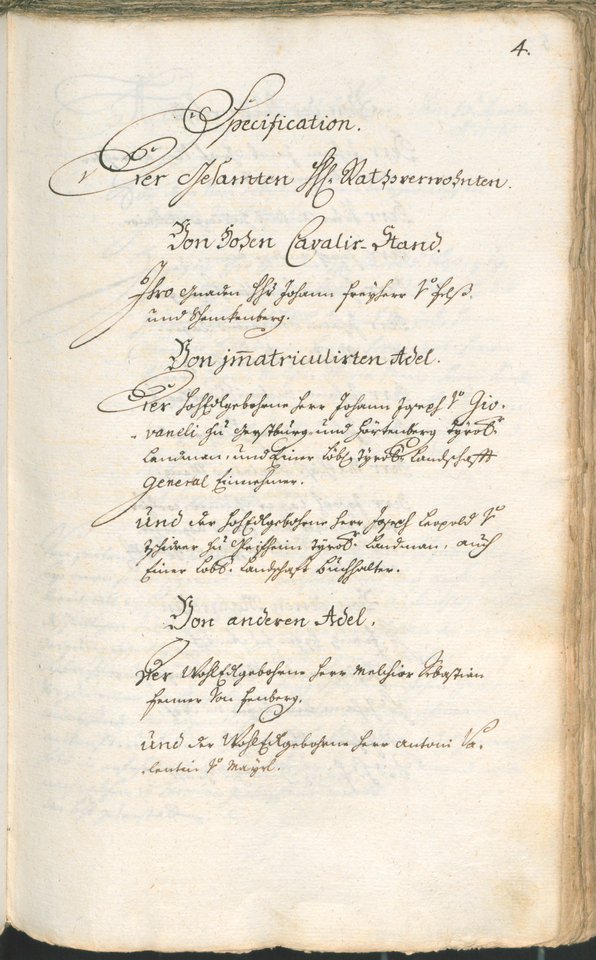 4.
Specification.
Der Gesamten HH: Rathsverwohnten.
Von Hohen Cavalir-Stand.
Ihro Gnaden HHr Johann Freyherr v:
und Schenkenberg.
Von im̅atriculirten Adel.
Der HochEdlgebohrne Herr Johann Joseph v: Gio-
-vaneli zu Gerstburg und Hörtenberg Tyrol:
Landman, und Einer Löbl: Tyrol: Landschafft
General Einnehmer.
Und der HochEdlgebohrne Herr Joseph Leopold v:
zu Tyrol: Landman, auch
Einer Löbl: Landschaft Buchhalter.
Von anderen Adel.
Der WohlEdlgebohrne Herr Melchior Sebastian
Fenner von Fenberg.
Und der WohlEdlgebohrne Herr Antoni Va-
-lentin v: Mayrl.